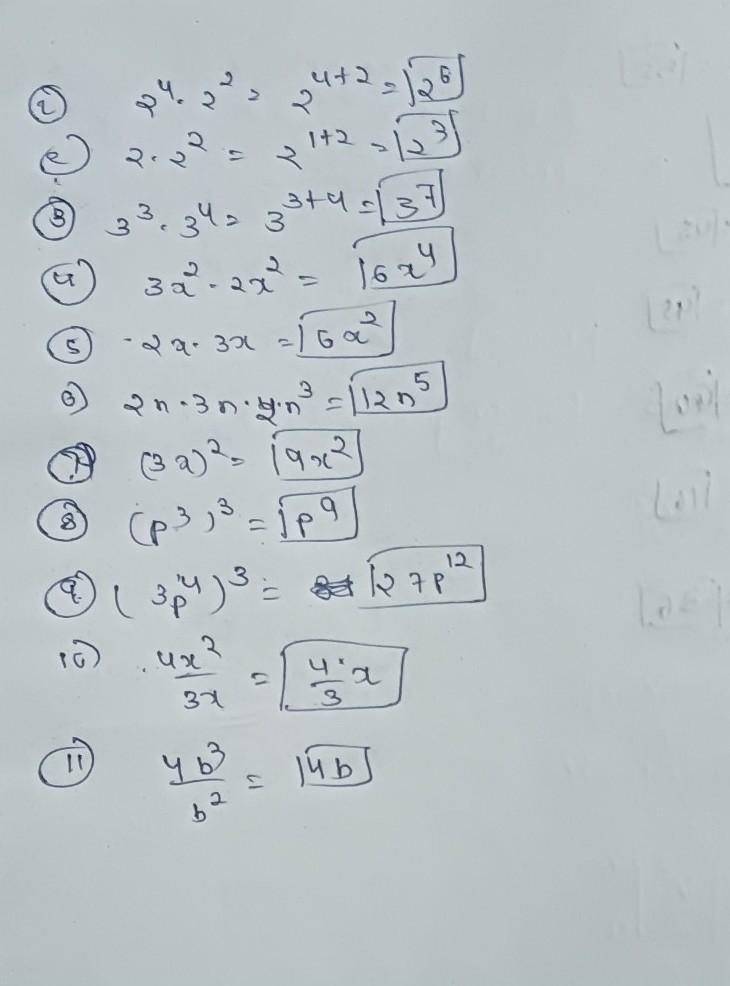 ① 2⁴ · 2² = 2⁴⁺² = 2⁶
② 2 · 2² = 2¹⁺² = 2³
③ 3³ · 3⁴ = 3³⁺⁴ = 3⁷
④ 3x² · 2x² = 6x⁴
⑤ 2x · 3x = 6x²
6) 2n · 3n · 2n³ = 12n⁵
⑦ (3x)² = 9x²
⑧ (p³)³ = p⁹
⑨ (3p⁴)³ = 27p¹²
10) 4x²/3x = 4/3 x
⑪ 4b³/b² = 4b